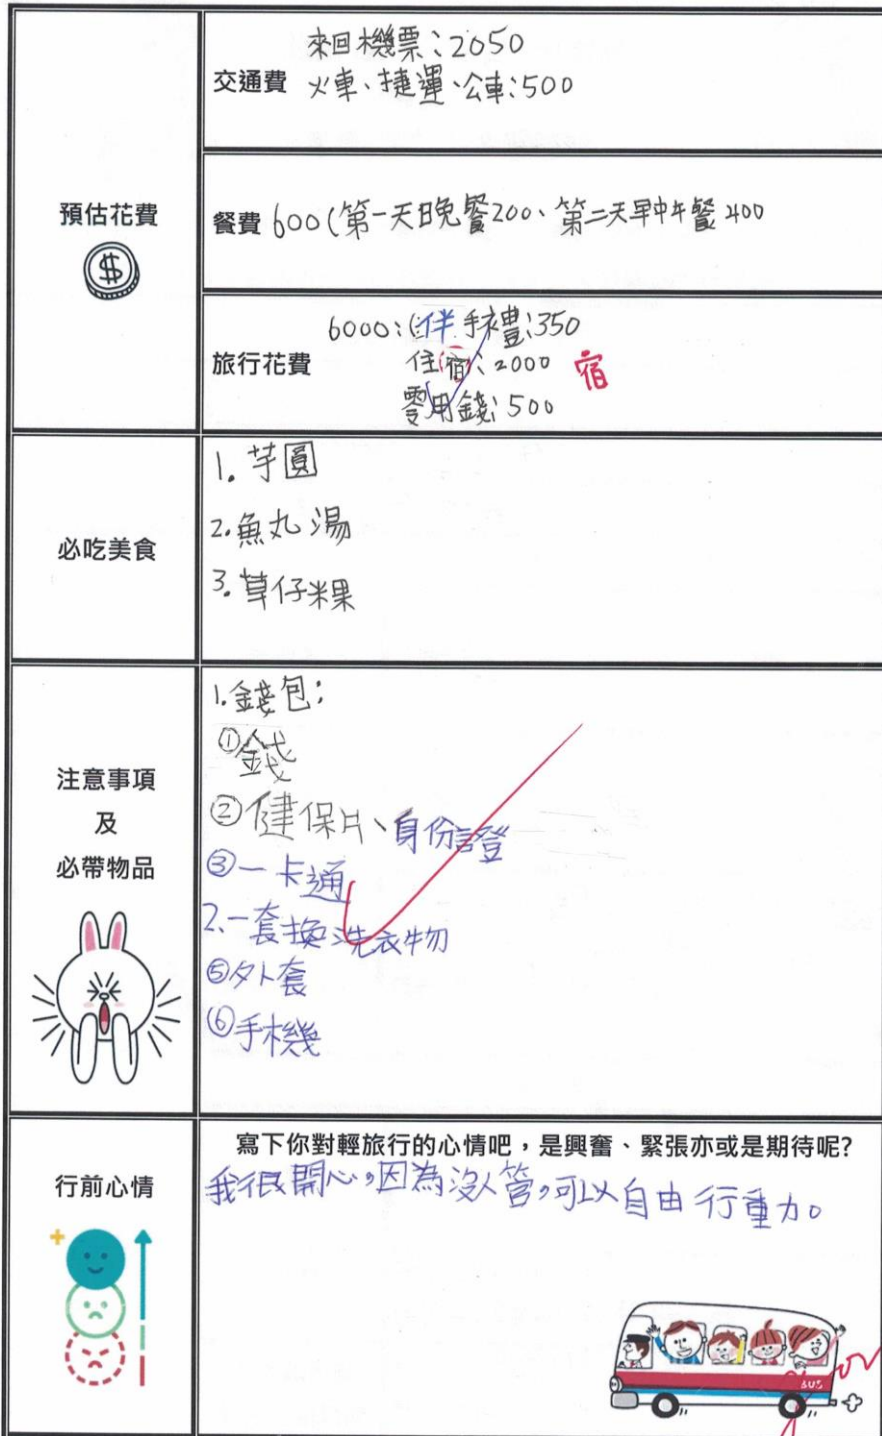 預估花費
交通費
來回機票:2050
火車、捷運、公車:500
餐費 600(第一天晚餐200、第二天早中午餐400
旅行花費
6000:(伴手禮:350
住宿:2000 宿
零用錢:500
必吃美食
1. 芋圓
2. 魚丸湯
3. 草仔粿
注意事項
及
必帶物品
1. 錢包:
①錢
②健保片、身份證
③一卡通
2. 一套換洗衣物
⑤外套
⑥手機
行前心情
寫下你對輕旅行的心情吧,是興奮、緊張亦或是期待呢?
我很開心,因為沒人管,可以自由行動。
BUS